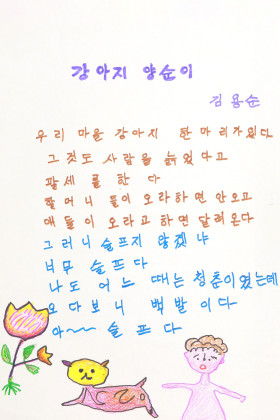 강아지 양순이
김용순
우리 마을 강아지 한마리가 있다
그것도 사람을 늙었다고
괄세를 한다
할머니들이 오라하면 안오고
애들이 오라고하면 달려온다
그러니 슬프지 않겠냐
너무 슬프다
나도 어느 때는 청춘이였는데
오다보니 백발이다
아~~ 슬프다